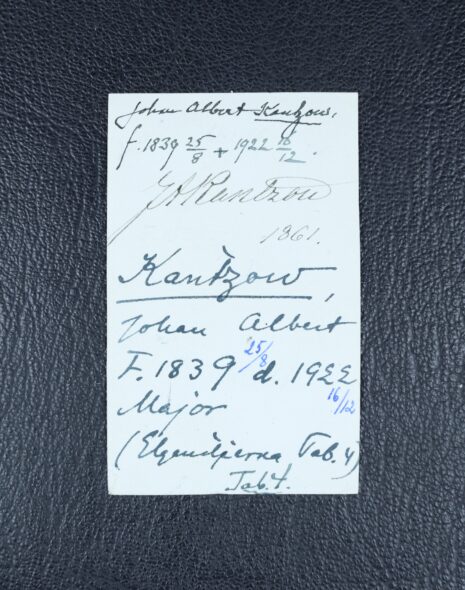 Johan Albert Kantzow,
f. 1839 25/8 + 1922 16/12.
JAKantzow
1861.
Kantzow,
Johan Albert
F. 1839 25/8 d. 1922 16/12
Major
(Elgenstjerna Tab. 4)
Tab. 4.